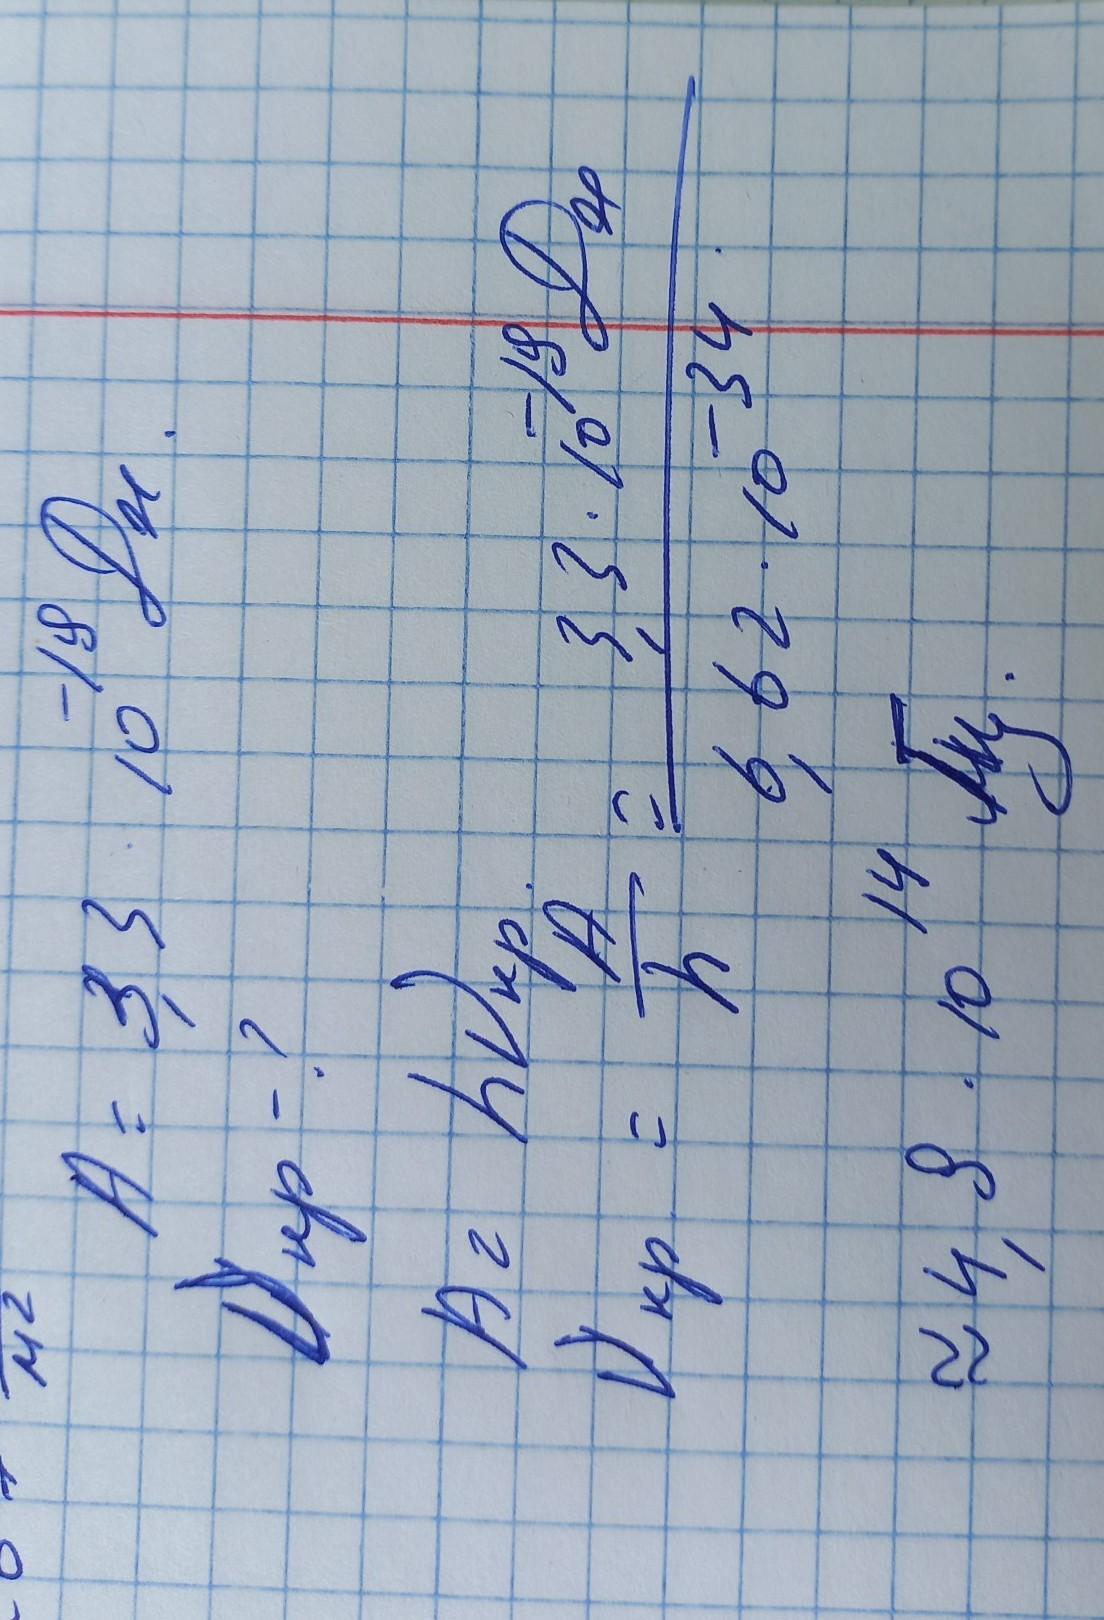 м²
A = 3,3 · 10⁻¹⁹ Дж.
νкр - ?
A = hνкр.
νкр = A/h = 3,3 · 10⁻¹⁹ Дж / 6,62 · 10⁻³⁴
≈ 4,9 · 10¹⁴ Гц.